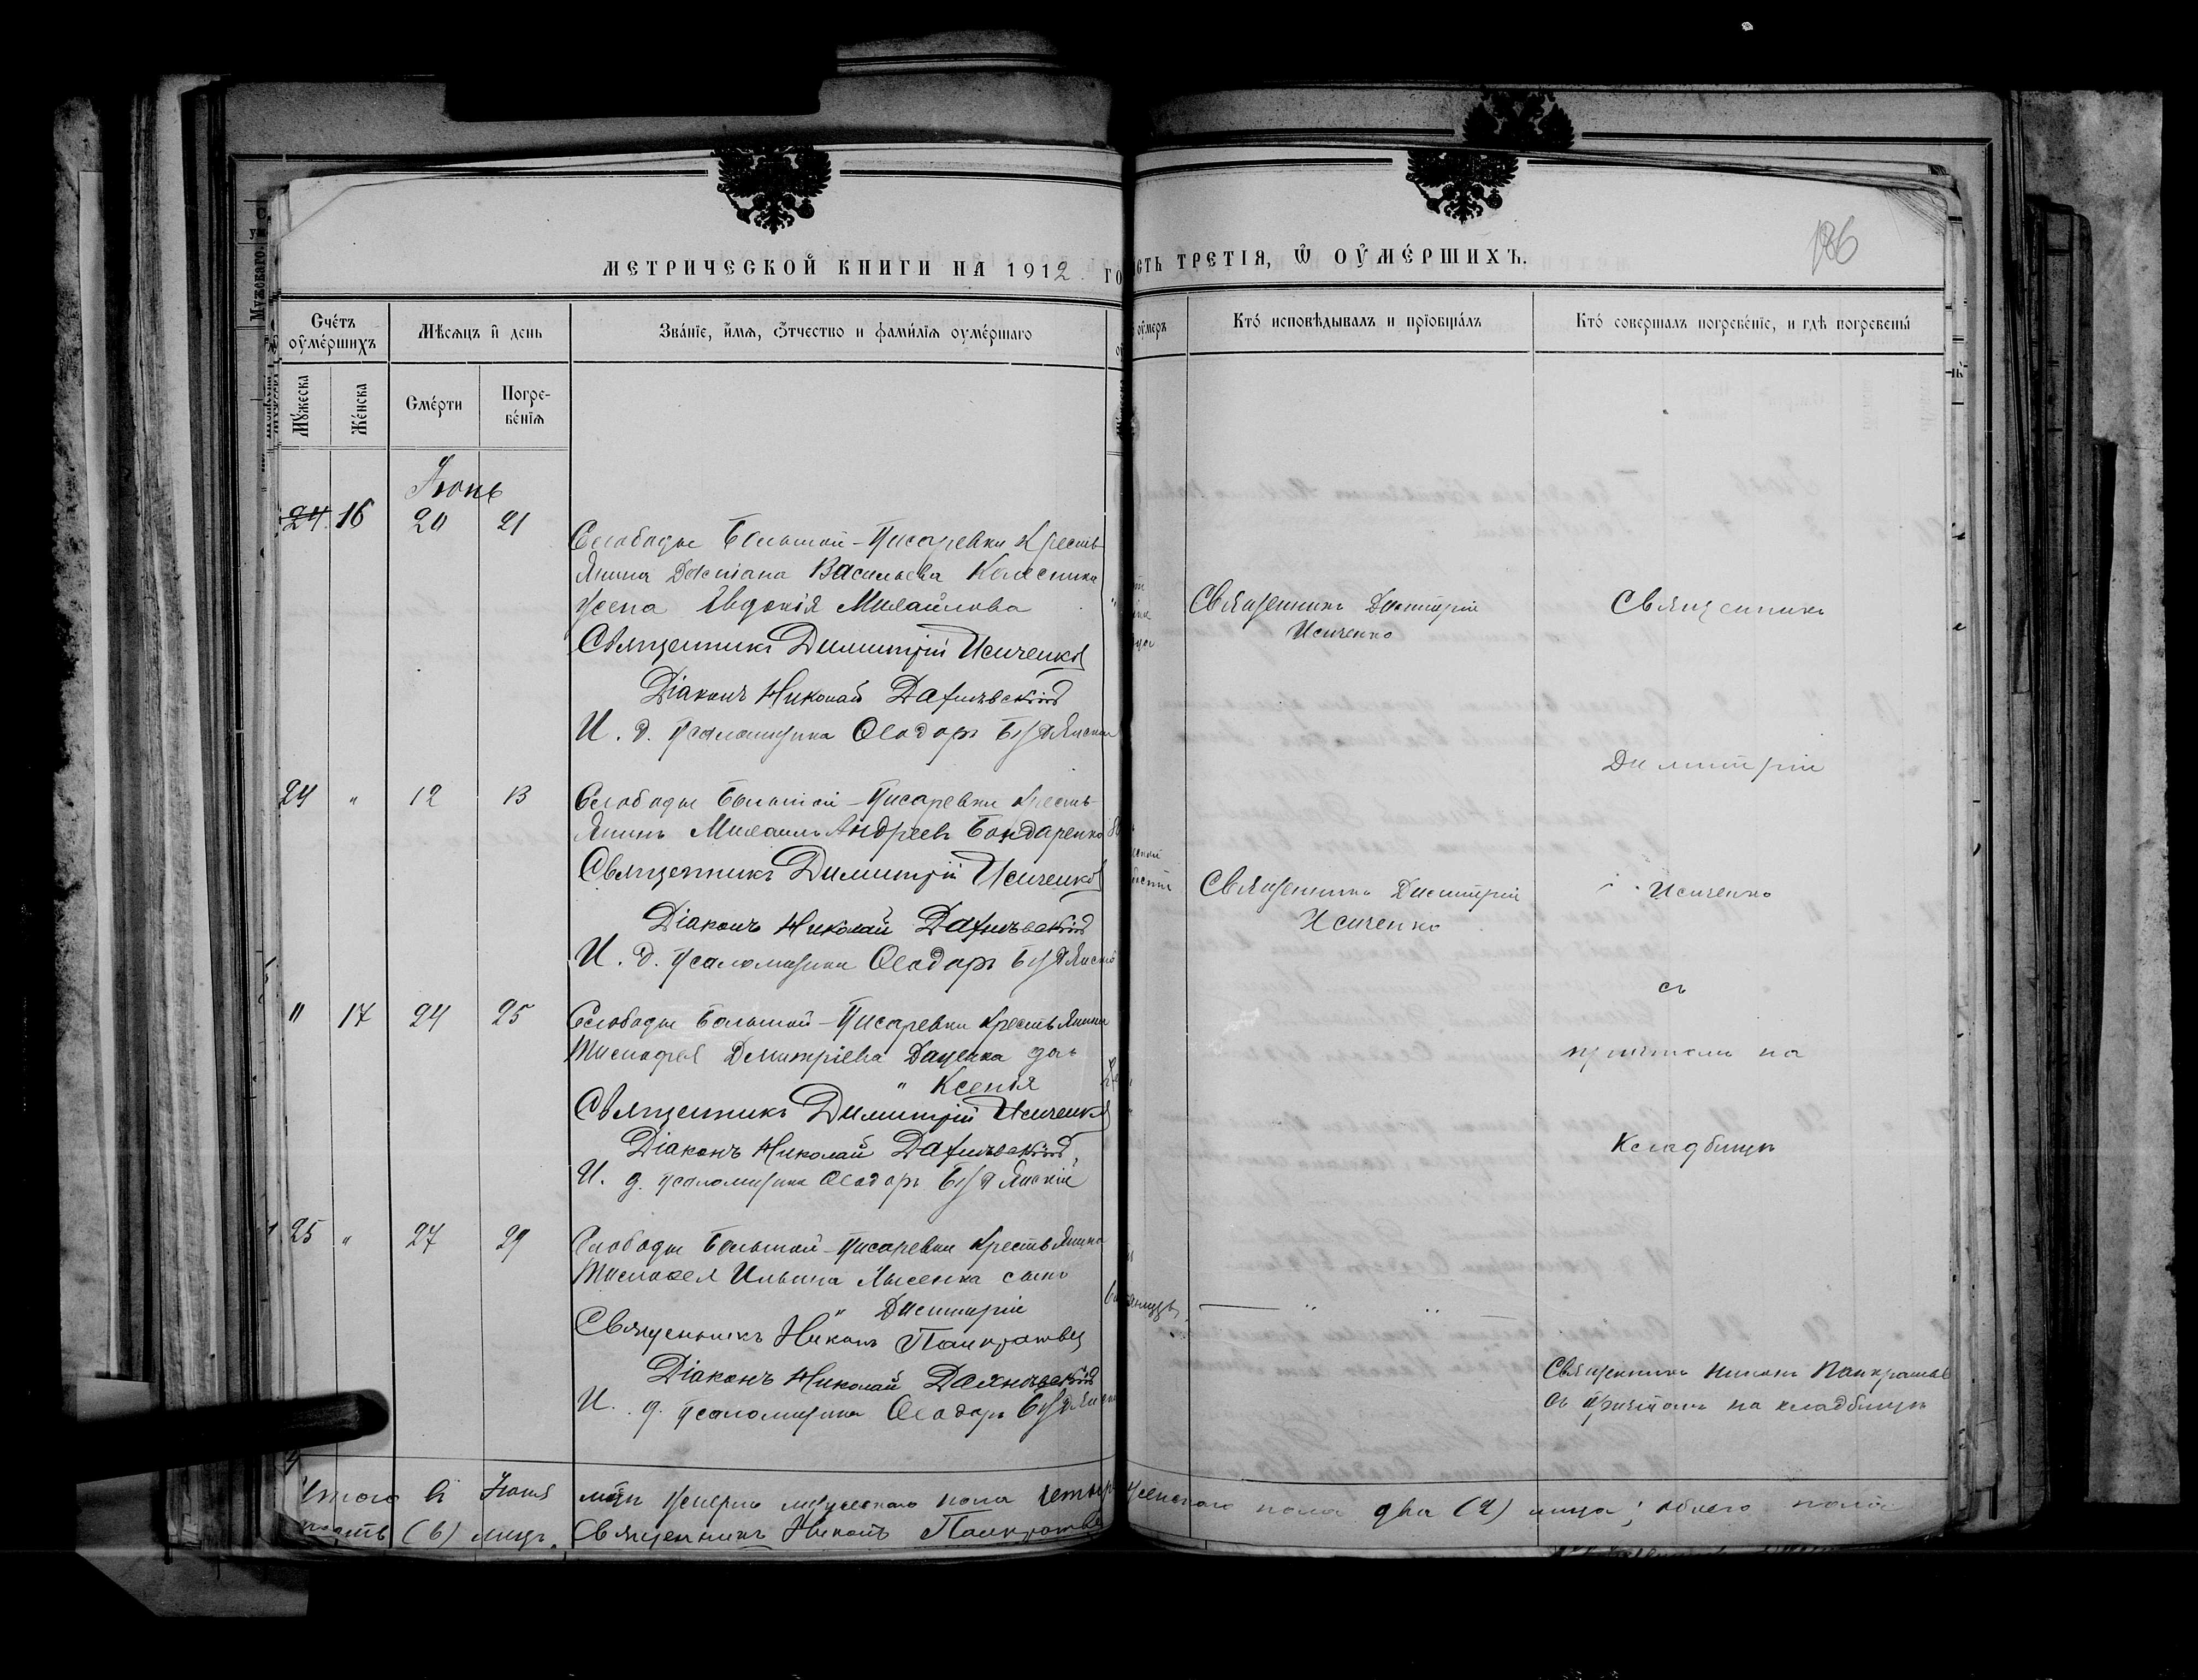 186
МЕТРИЧЕСКОЙ КНИГИ НА 1912 ГО
СТЬ ТРЕТІЯ, Ѿ ОУМЕРШИХЪ.
Счетъ оумершихъ
Мѣсяцъ и день
Званіе, имя, отчество и фамилія оумершаго
оумеръ
Кто исповѣдывалъ и пріобщалъ
Кто совершалъ погребеніе, и гдѣ погребены
Мужеска
Женска
Смерти
Погребенія
Іюнь
24 16 20 21
Слободы Большой-Писаревки кресть-
янина Доктіана Васильева Колесника
жена Евдокія Михайлова
Священникъ Димитрій Исиченко
Діаконъ Николай
И. д. псаломщика Ѳеодоръ
Священникъ Димитрій
Исиченко
Священникъ
Димитрій
24 " 12 13
Слободы Большой-Писаревки кресть-
янинъ Михаилъ Андреевъ Бондаренко
Священникъ Димитрій Исиченко
Діаконъ Николай
И. д. псаломщика Ѳеодоръ
Священникъ Димитрій
Исиченко
Исиченко
съ
" 17 24 25
Слободы Большой-Писаревки крестьянина
Тимофея Димитріева Даценка дочь
" Ксенія
Священникъ Димитрій Исиченко
Діаконъ Николай
И. д. псаломщика Ѳеодоръ
причтомъ на
кладбищѣ
25 " 27 29
Слободы Большой-Писаревки крестьянина
Тимофея Ильина Лысенка сынъ
" Димитрій
Священникъ Никонъ Панкратьевъ
Діаконъ Николай
И. д. псаломщика Ѳеодоръ
Священникъ Никонъ Панкратьевъ
съ причтомъ на кладбищѣ
Итого въ Іюнѣ м-цѣ умерло мужескаго пола четыр
женскаго пола два (2) лица; обоего пола
шесть (6) лицъ. Священникъ Никонъ Панкратьевъ